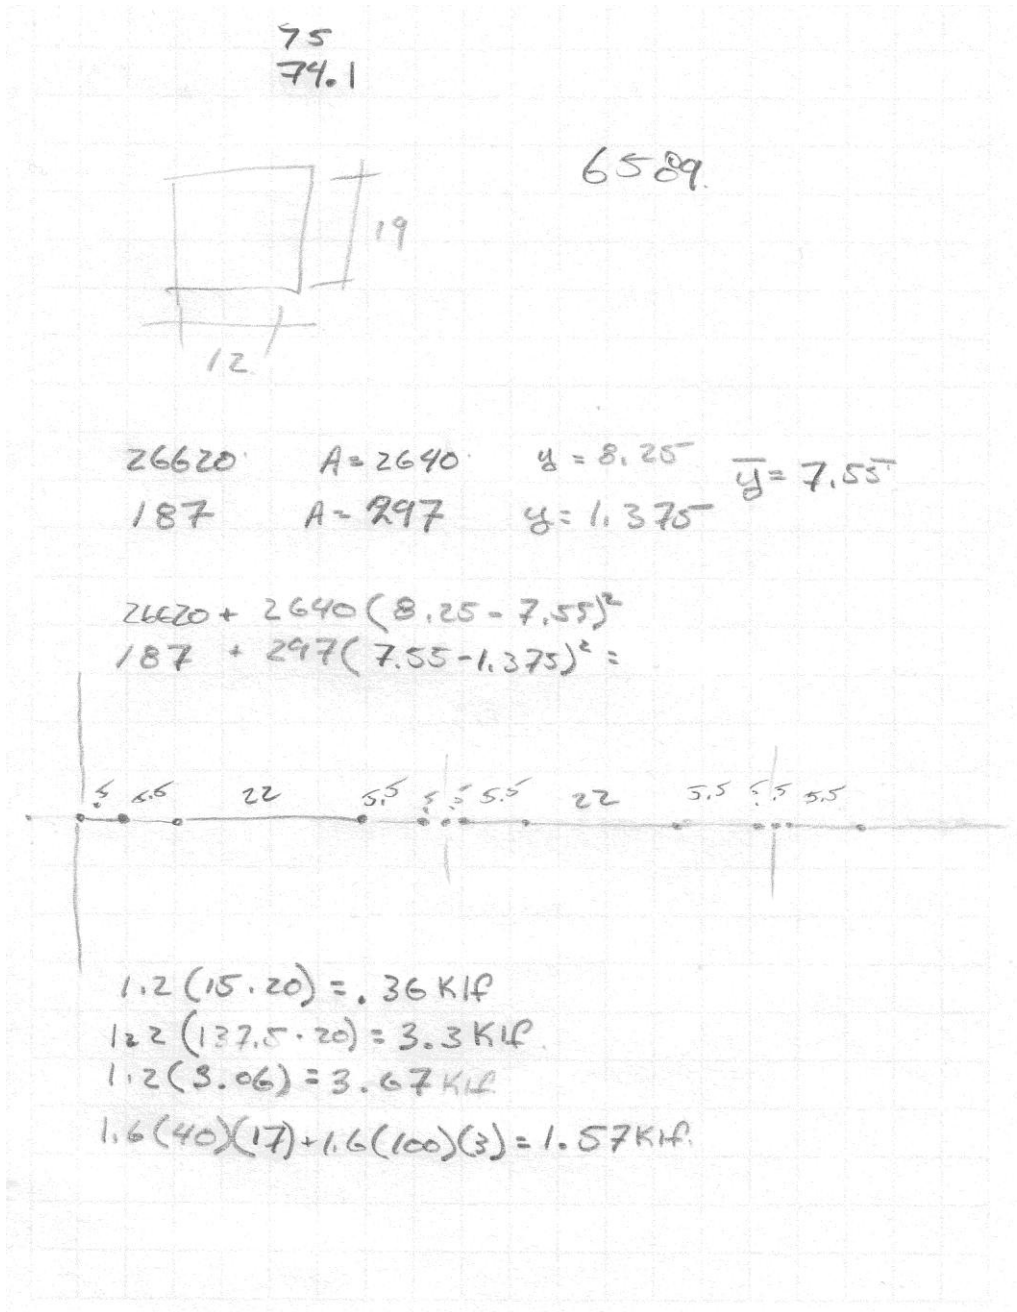 75
74.1
6589.
19
12
26620 A=2640 y=8.25 ȳ=7.55
187 A=297 y=1.375
26620 + 2640(8.25-7.55)²
187 + 297(7.55-1.375)² =
.5 5.5 22 5.5 .5 .5 5.5 22 5.5 .5 .5 5.5
1.2(15·20)=.36 Klf
1.2(137.5·20)=3.3 Klf.
1.2(3.06)=3.67 Klf
1.6(40)(17)+1.6(100)(3)=1.57 Klf.